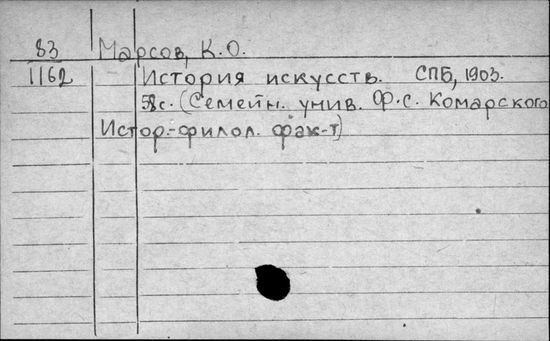 83 Марсов, К.О.
1162 История искусств. СПБ, 1903.
с. (Семейн. унив. Ф.С. Комарского
Истор.-филол. фак-т)